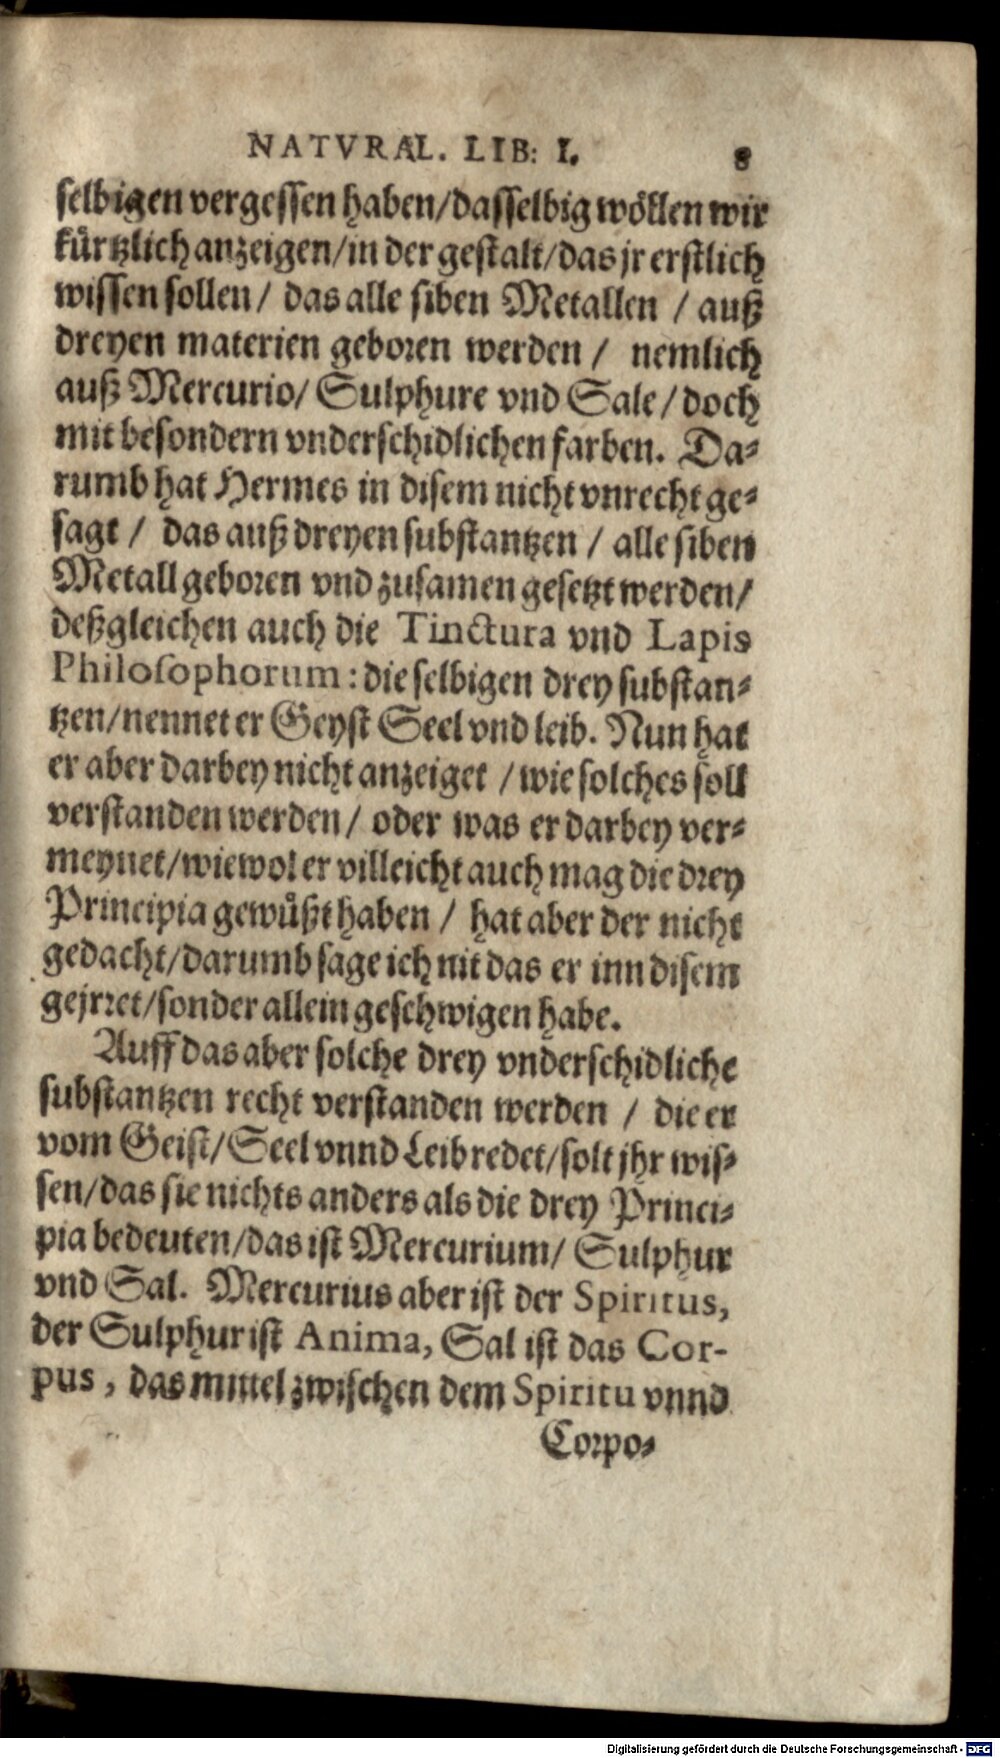 NATVRAL. LIB: I. 8
selbigen vergessen haben/dasselbig wöllen wir
kürtzlich anzeigen/in der gestalt/das jr erstlich
wissen sollen/ das alle siben Metallen / auß
dreyen materien geboren werden / nemlich
auß Mercurio/ Sulphure vnd Sale/ doch
mit besondern vnderschidlichen farben. Da-
rumb hat Hermes in disem nicht vnrecht ge-
sagt / das auß dreyen substantzen / alle siben
Metall geboren vnd zusamen gesetzt werden/
deßgleichen auch die Tinctura vnd Lapis
Philosophorum: die selbigen drey substan-
tzen/nennet er Geyst Seel vnd leib. Nun hat
er aber darbey nicht anzeiget / wie solches soll
verstanden werden/ oder was er darbey ver-
meynet/wiewol er villeicht auch mag die drey
Principia gewüßt haben / hat aber der nicht
gedacht/darumb sage ich nit das er inn disem
gejrret/sonder allein geschwigen habe.
Auff das aber solche drey vnderschidliche
substantzen recht verstanden werden / die er
vom Geist/Seel vnnd Leib redet/solt jhr wis-
sen/das sie nichts anders als die drey Princi-
pia bedeuten/das ist Mercurium/ Sulphur
vnd Sal. Mercurius aber ist der Spiritus,
der Sulphur ist Anima, Sal ist das Cor-
pus, das mittel zwischen dem Spiritu vnnd
Corpo-
Digitalisierung gefördert durch die Deutsche Forschungsgemeinschaft - DFG